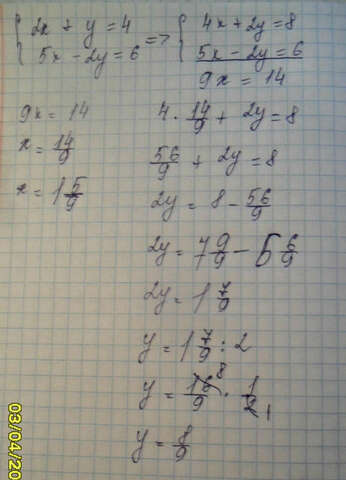 2x + y = 4 => 4x + 2y = 8
5x - 2y = 6 5x - 2y = 6
9x = 14
9x = 14
x = 14/9
x = 1 5/9
4 · 14/9 + 2y = 8
56/9 + 2y = 8
2y = 8 - 56/9
2y = 7 9/9 - 6 6/9
2y = 1 7/9
y = 1 7/9 : 2
y = 16/9 8 · 1/2 1
y = 8/9
03/04/20